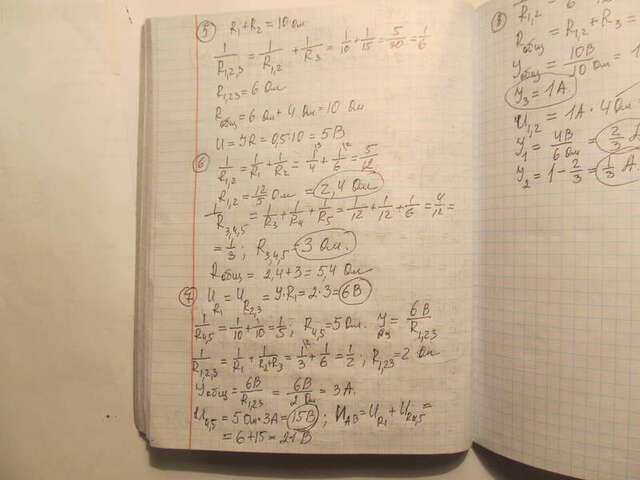 5 R₁+R₂=10 Ом
1/R₁,₂,₃ = 1/R₁,₂ + 1/R₃ = 1/10 + 1/15 = 5/30 = 1/6
R₁,₂,₃ = 6 Ом
Rобщ = 6 Ом + 4 Ом = 10 Ом
U = YR = 0,5·10 = 5В
6 1/R₁,₂ = 1/R₁ + 1/R₂ = 1/4 + 1/6 = 5/12.
R₁,₂ = 12/5 Ом = 2,4 Ом
1/R₃,₄,₅ = 1/R₃ + 1/R₄ + 1/R₅ = 1/12 + 1/12 + 1/6 = 4/12 =
= 1/3; R₃,₄,₅ = 3 Ом.
Rобщ = 2,4+3 = 5,4 Ом
7 U R₁ = U R₂,₃ = Y·R₁ = 2·3 = 6В
1/R₄,₅ = 1/10 + 1/10 = 1/5; R₄,₅ = 5 Ом. Y = 6В/R₁,₂,₃
1/R₁,₂,₃ = 1/R₁ + 1/R₂+R₃ = 1/3 + 1/6 = 1/2; R₁,₂,₃ = 2 Ом
Yобщ = 6В/R₁,₂,₃ = 6В/2 Ом = 3А.
U₄,₅ = 5 Ом·3А = 15В; UАВ = UR₁ + UR₄,₅ =
= 6+15 = 21 В
8 R₁,₂
Rобщ = R₁,₂ + R₃ =
Yобщ = 10В/10 Ом = 1
Y₃ = 1А
U₁,₂ = 1А · 4 Ом
Y₁ = 4В/6 Ом = 2/3
Y₂ = 1 - 2/3 = 1/3 А.